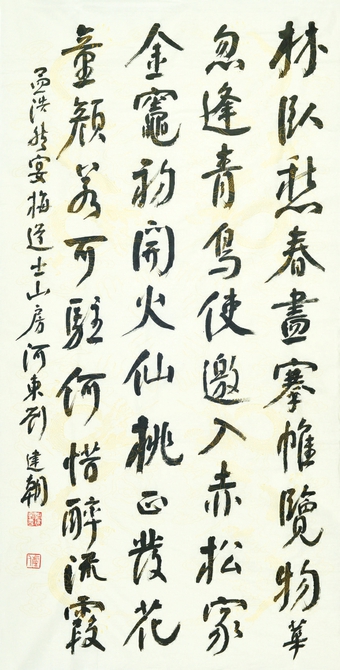 林臥愁春盡搴帷覽物華
忽逢青鳥使邀入赤松家
金竈初開火仙桃正發花
童顏若可駐何惜醉流霞
孟浩然宴梅道士山房河東劉建